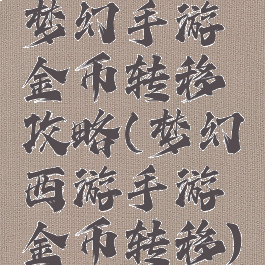 梦幻手游
金币转移
攻略(梦幻
西游手游
金币转移)